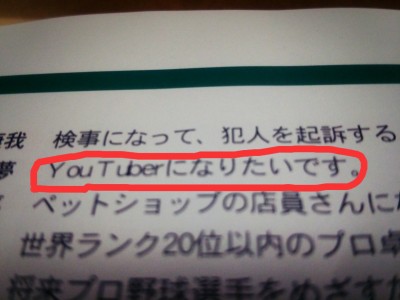 我 検事になって、犯人を起訴する
夢 YouTuberになりたいです。
ペットショップの店員さんにな
世界ランク20位以内のプロ卓
将来プロ野球選手をめざすた